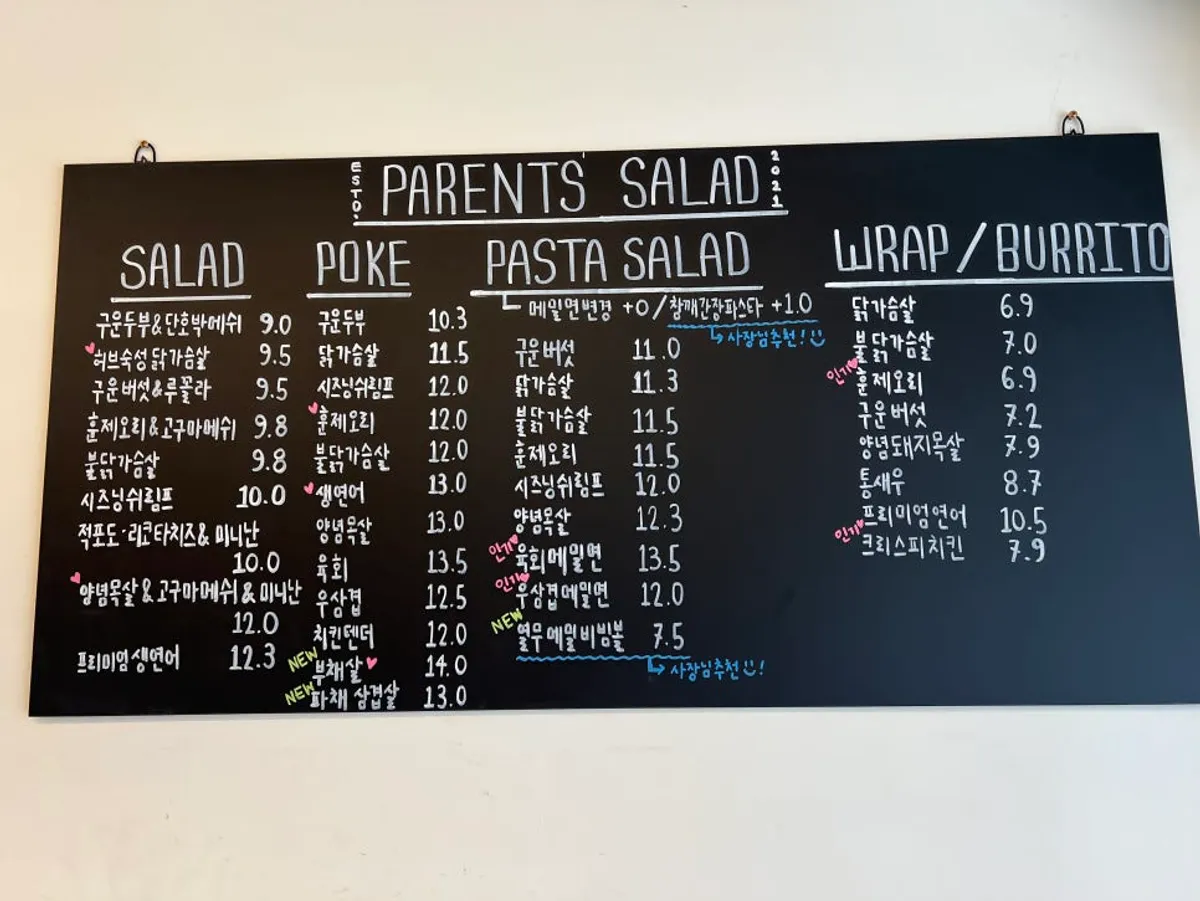 ESTD. PARENTS' SALAD 2021
SALAD
구운두부&단호박메쉬 9.0
허브숙성 닭가슴살 9.5
구운버섯&루꼴라 9.5
훈제오리&고구마메쉬 9.8
불닭가슴살 9.8
시즈닝쉬림프 10.0
적포도·리코타치즈&미니난
10.0
양념목살&고구마메쉬&미니난
12.0
프리미엄생연어 12.3
POKE
구운두부 10.3
닭가슴살 11.5
시즈닝쉬림프 12.0
훈제오리 12.0
불닭가슴살 12.0
생연어 13.0
양념목살 13.0
육회 13.5
우삼겹 12.5
치킨텐더 12.0
NEW 부채살 14.0
NEW 파채 삼겹살 13.0
PASTA SALAD
메밀면변경 +0 / 참깨간장파스타 +1.0
사장님추천!
구운버섯 11.0
닭가슴살 11.3
불닭가슴살 11.5
훈제오리 11.5
시즈닝쉬림프 12.0
양념목살 12.3
인기 육회메밀면 13.5
인기 우삼겹메밀면 12.0
NEW 열무메밀비빔볼 7.5
사장님추천!
WRAP / BURRITO
닭가슴살 6.9
불닭가슴살 7.0
인기 훈제오리 6.9
구운버섯 7.2
양념돼지목살 7.9
통새우 8.7
프리미엄연어 10.5
인기 크리스피치킨 7.9